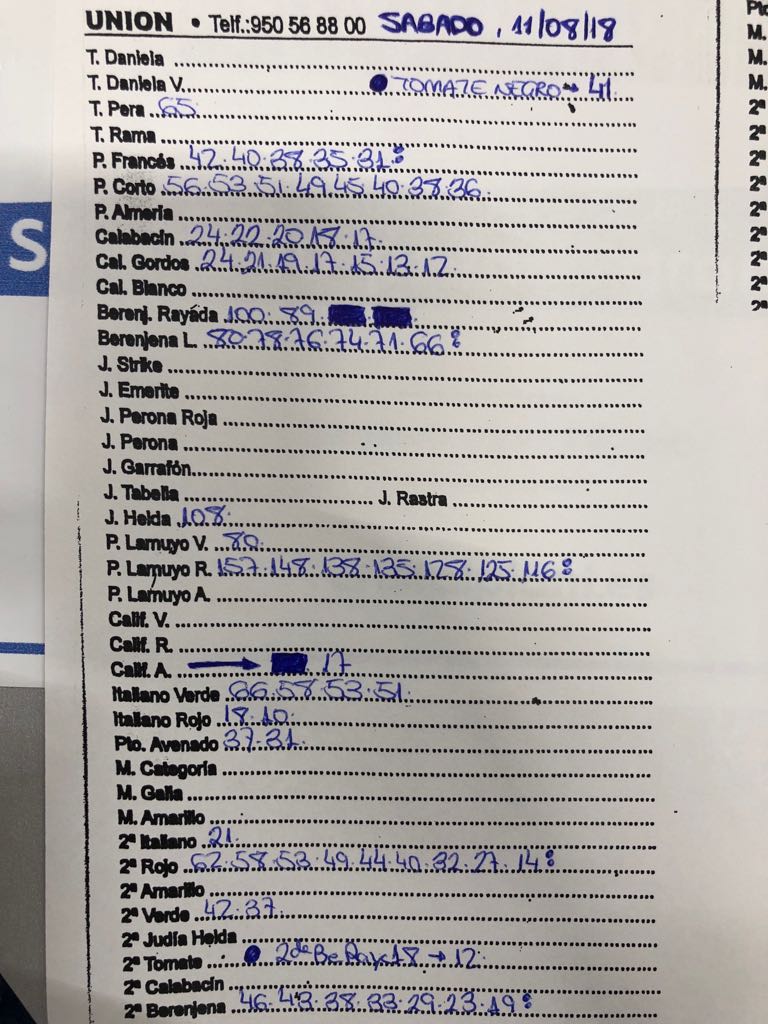 UNION • Telf.:950 56 88 00 SABADO, 11/08/18
T. Daniela
T. Daniela V. TOMATE NEGRO → 41
T. Pera 65
T. Rama
P. Francés 42.40.38.35.31:
P. Corto 56.53.51.49.45.40.38.36.
P. Almería
Calabacín 24.22.20.18.17.
Cal. Gordos 24.21.19.17.15.13.12.
Cal. Blanco
Berenj. Rayada 100. 89.
Berenjena L. 80.78.76.74.71.66:
J. Strike
J. Emerite
J. Perona Roja
J. Perona
J. Garrafón
J. Tabella J. Rastra
J. Helda 108.
P. Lamuyo V. 80.
P. Lamuyo R. 157.148.138.135.128.125.116:
P. Lamuyo A.
Calif. V.
Calif. R.
Calif. A. → 17
Italiano Verde 66.58.53.51.
Italiano Rojo 18.10.
Pto. Avenado 37.31.
M. Categoría
M. Galia
M. Amarillo
2ª Italiano 21.
2ª Rojo 62.58.53.49.44.40.32.27.14:
2ª Amarillo
2ª Verde 42.37.
2ª Judía Helda
2ª Tomate 2de Be Ray. 18 → 12.
2ª Calabacín
2ª Berenjena 46.43.38.33.29.23.19:
S
Pto
M.
M.
M.
2ª
2ª
2ª
2ª
2ª
2ª
2ª
2ª
2ª